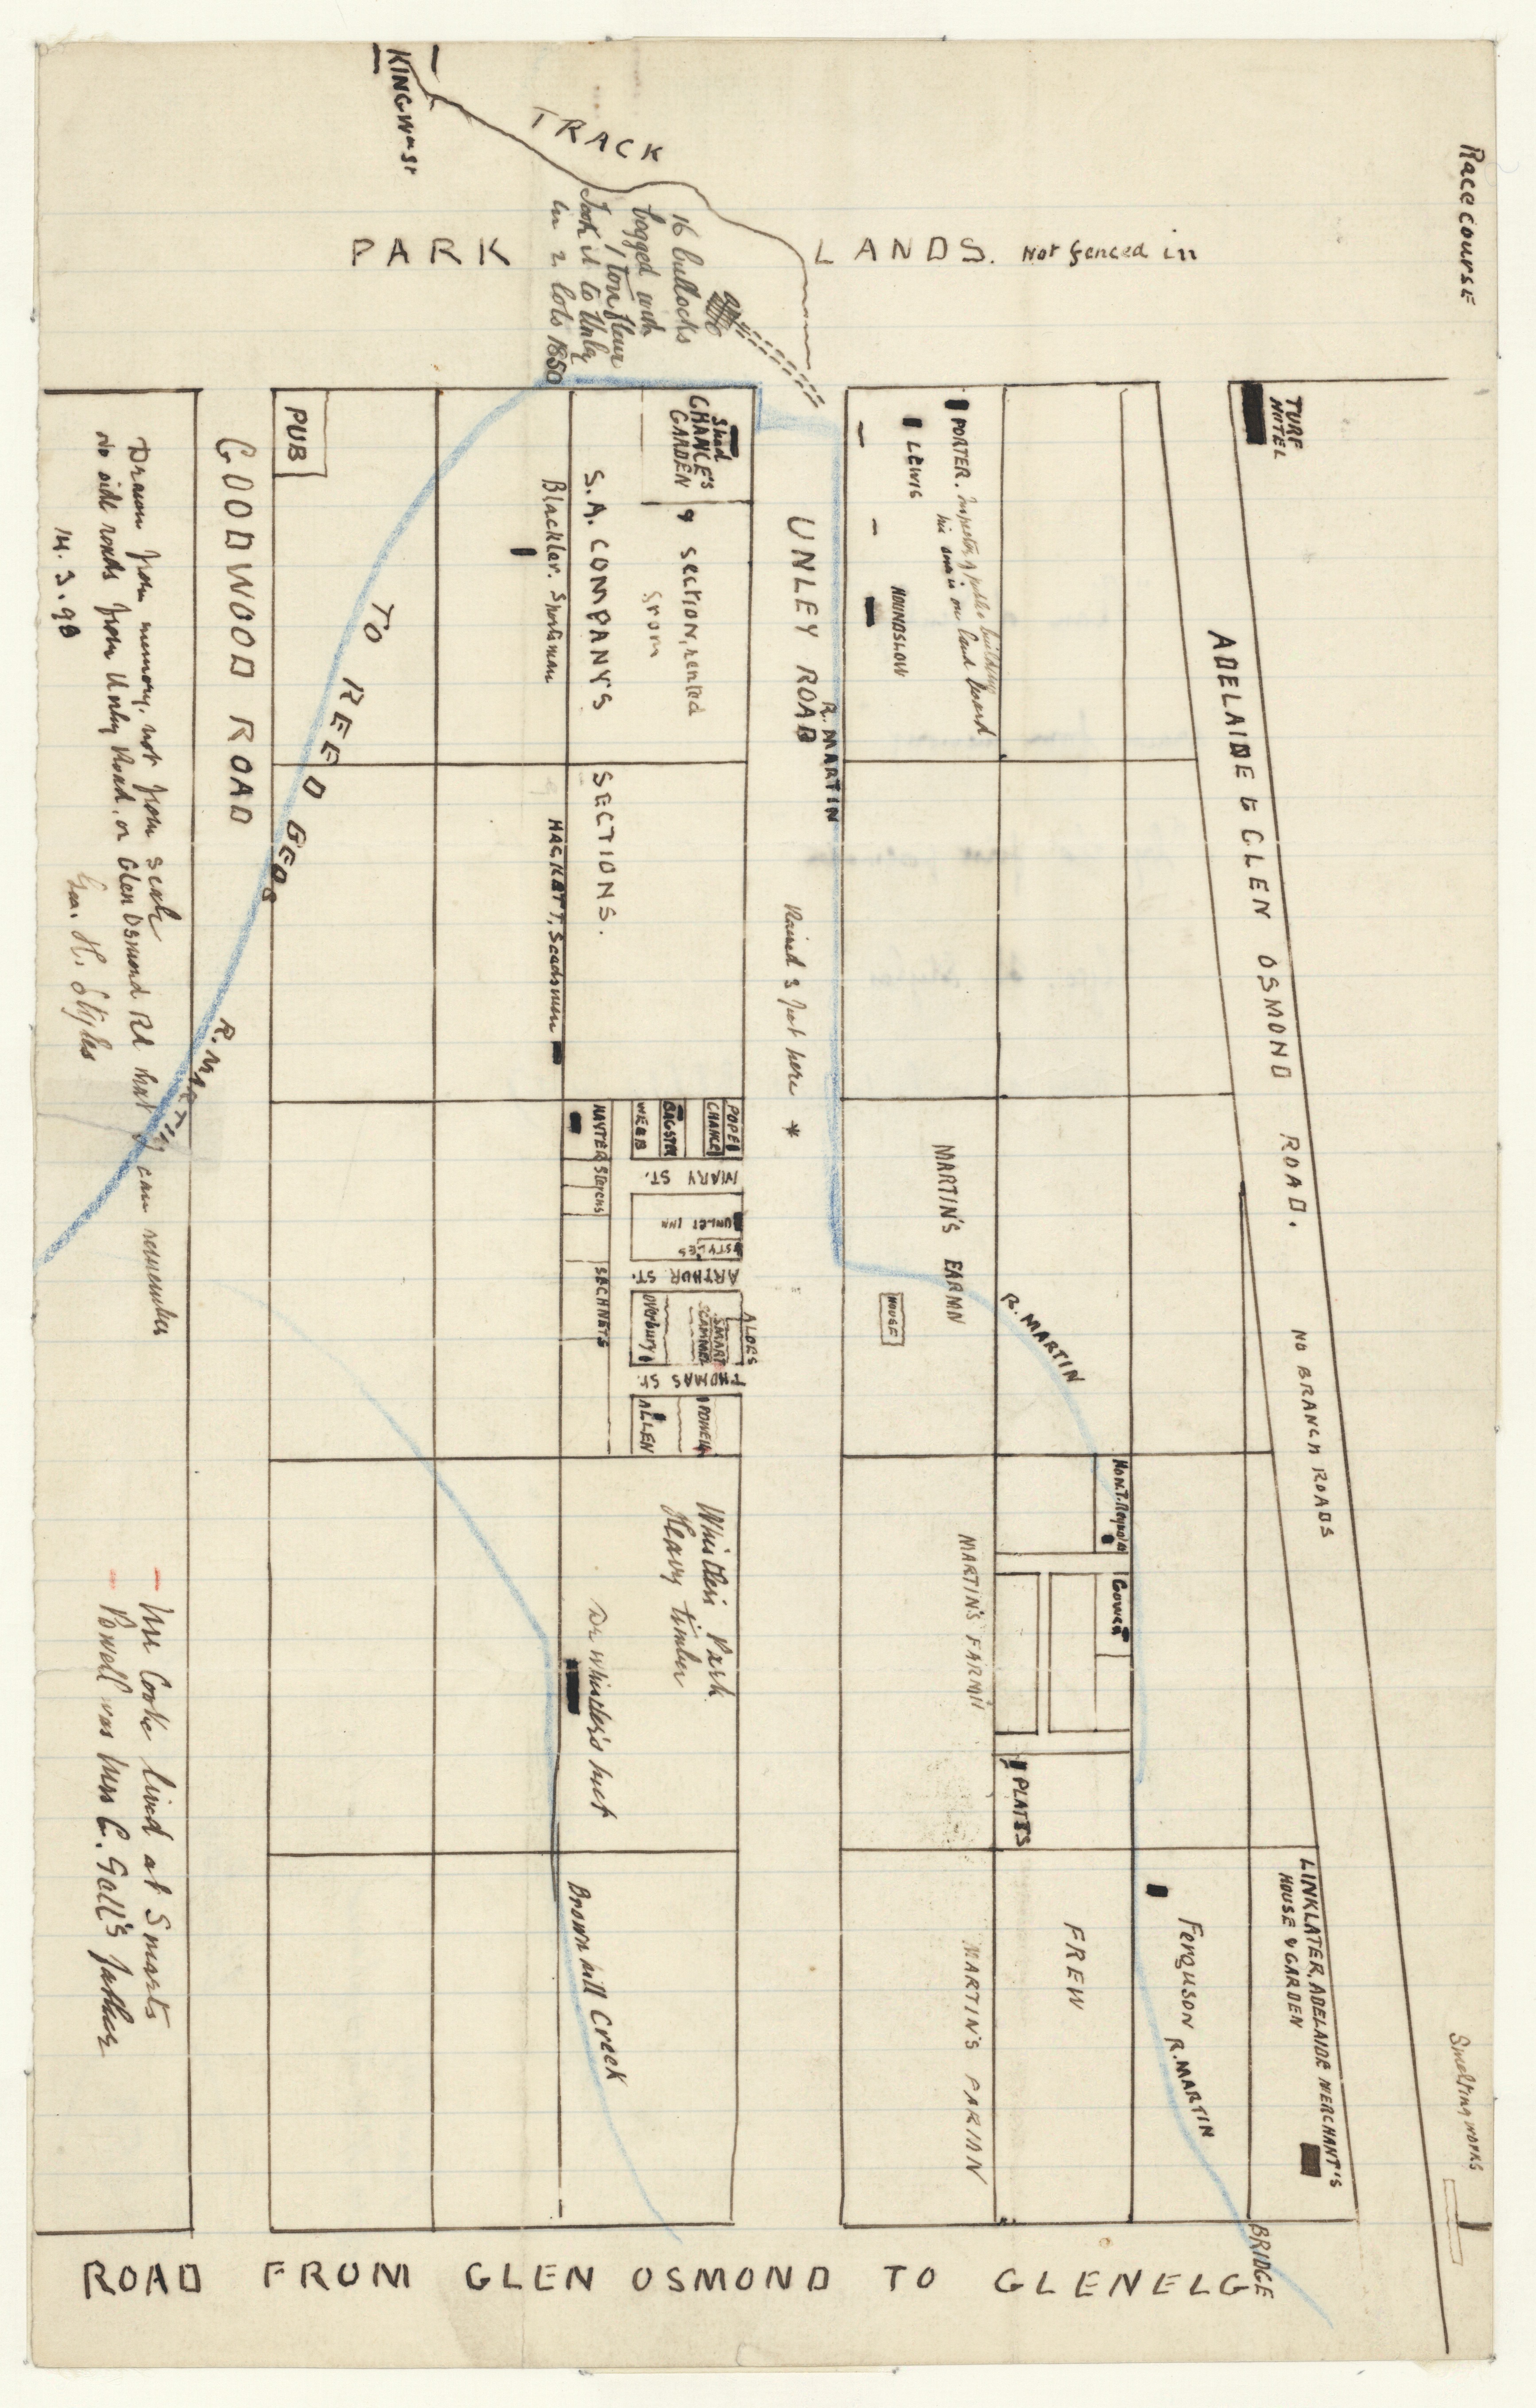 KING Wm ST
TRACK
Race course
PARK LANDS. Not fenced in
16 bullocks
bogged with
1 ton flour
Took it to Unley
in 2 lots 1850
PUB
GOODWOOD ROAD
TO REED BEDS
R. MARTIN
Drawn from memory, not from scale
No side roads from Unley Road, or Glen Osmond Rd that I can remember
Geo. H. Styles
14.3.90
Shed
CHANCE'S
GARDEN
& section, rented
from
S.A. COMPANY'S
SECTIONS.
Blackler. Sportsman
HACKETT, Seedsmen
UNLEY ROAD
R. MARTIN
Raised 3 feet here *
PORTER. Inspector of public buildings
his son is on land board
LEWIS
HOUNSLOW
TURF
HOTEL
ADELAIDE to GLEN OSMOND ROAD.
NO BRANCH ROADS
POPE
CHANCE
BAGSTER
WEBB
HAYTER
Stevens
MARY ST.
UNLEY INN
STYLES
ARTHUR ST.
SACHNETS
ALDES
SMART
SCAMMEL
Overbury
THOMAS ST.
POWELL
ALLEN
MARTIN'S FARM
HOUSE
R. MARTIN
Whistlers Park
Heavy timber
Dr Whistler's hut
MARTIN'S FARM
Hon. T. Reynolds
Gower
PLATTS
Brown hill Creek
MARTIN'S FARM
FREW
Ferguson
R. MARTIN
LINKLATER, ADELAIDE MERCHANT'S
HOUSE & GARDEN
Smelting works
BRIDGE
Mr Cooke lived at Smarts
Powell was Mrs C. Gall's father
ROAD FROM GLEN OSMOND TO GLENELG